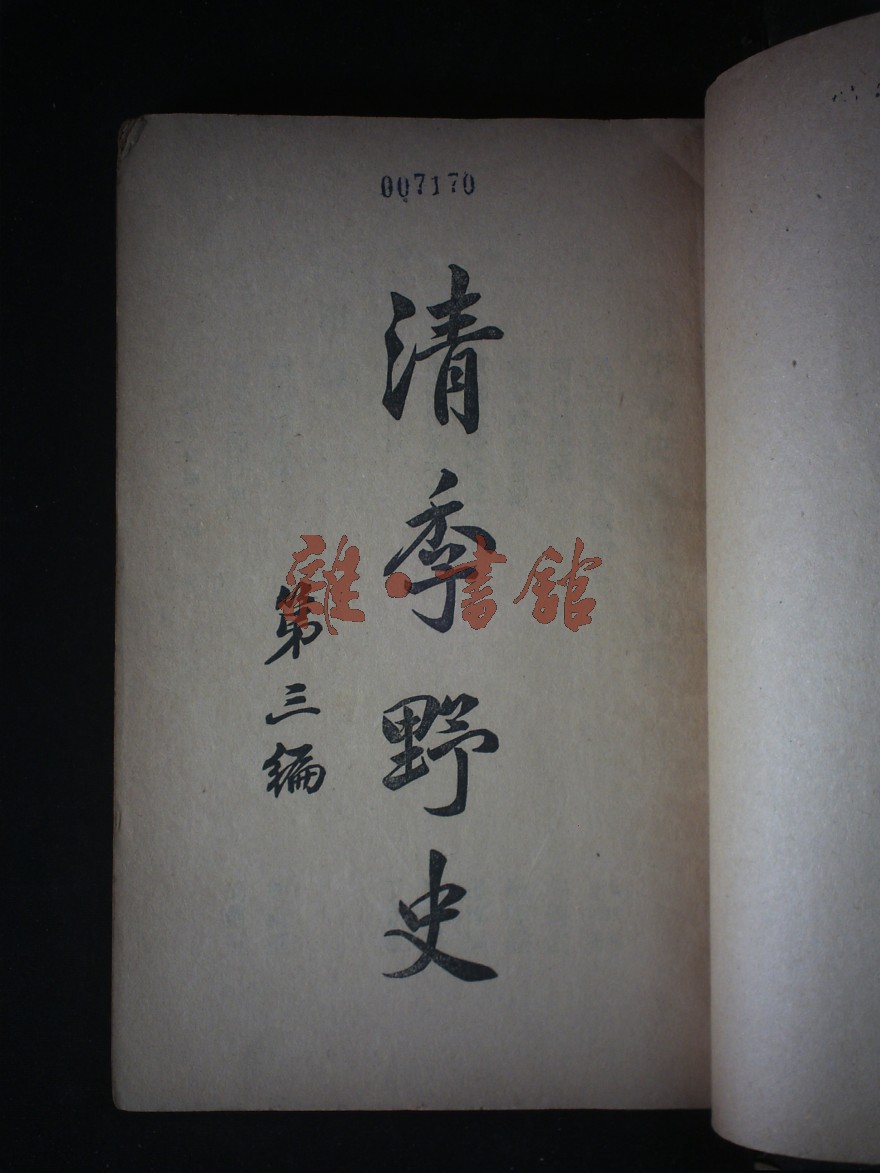 007170
清季野史
第三編
雜·書館